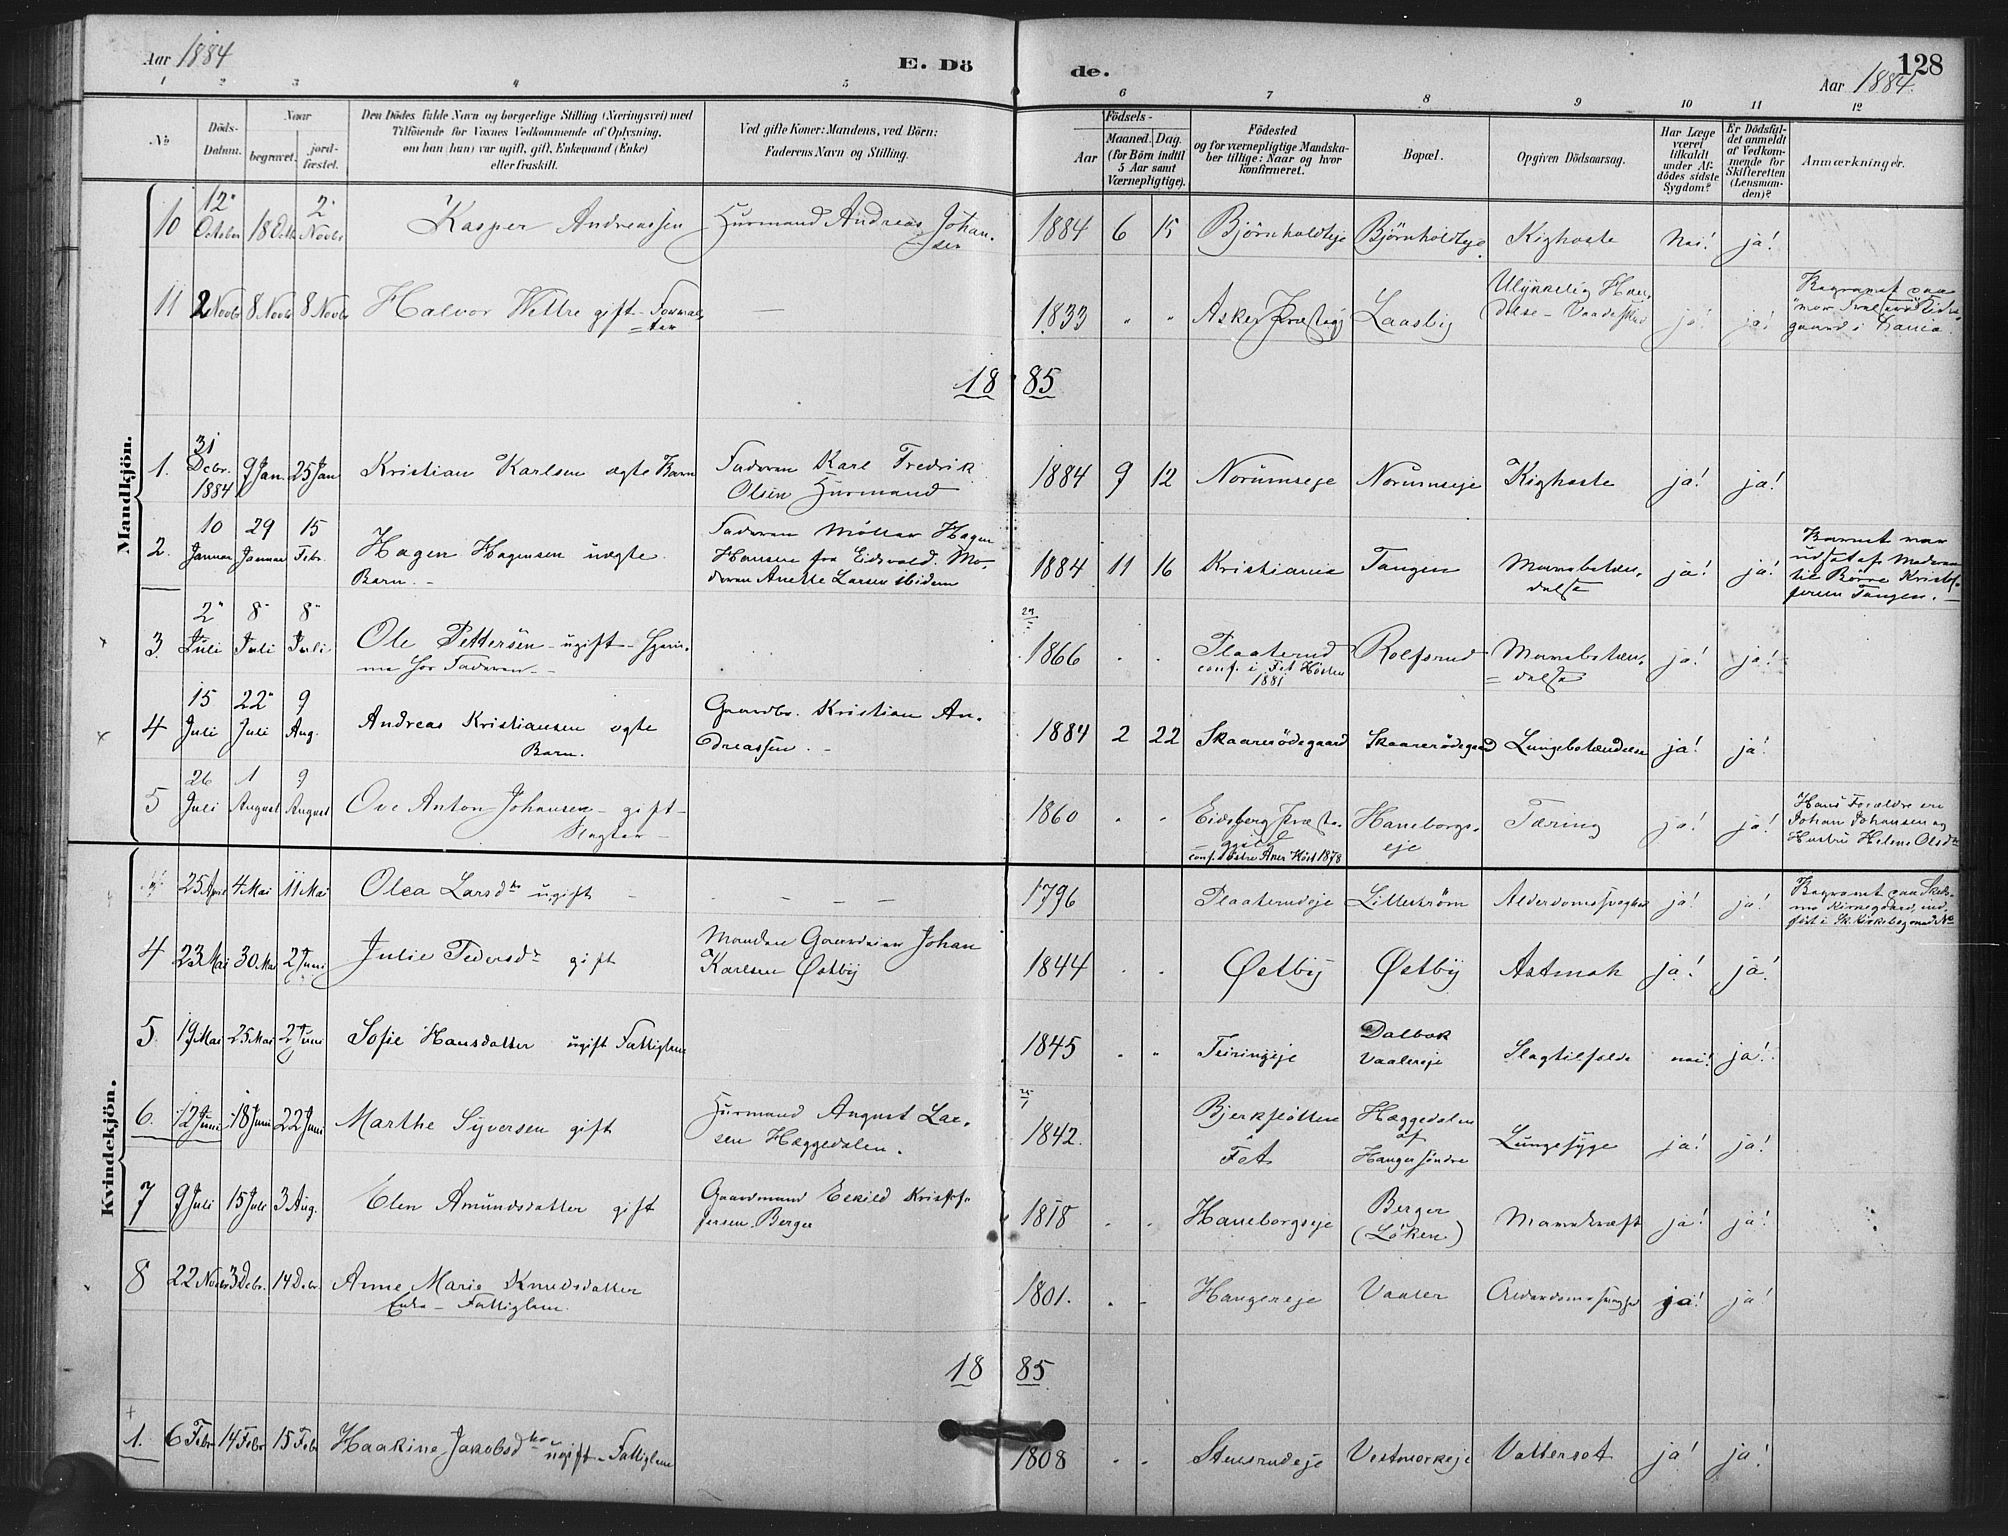 Aar 1884
E. Dö
de.
128
Aar 1884.
1 2 3 4 5 6 7 8 9 10 11 12
No
Döds-
Datum.
Naar
begravet.
jord-
fæstet.
Den Dödes fulde Navn og borgerlige Stilling (Næringsvei) med
Tilföiende for Voxnes Vedkommende af Oplysning,
om han (hun) var ugift, gift, Enkemand (Enke)
eller fraskilt.
Ved gifte Koner: Mandens, ved Börn:
Faderens Navn og Stilling.
Födsels-
Aar
Maaned. Dag.
(for Börn indtil
5 Aar samt
Værnepligtige).
Födested
og for værnepligtige Mandska-
ber tillige: Naar og hvor
konfirmeret.
Bopæl.
Opgiven Dödsaarsag.
Har Læge
været
tilkaldt
under Af-
dödes sidste
Sygdom?
Er Dödsfal-
det anmeldt
af Vedkom-
mende for
Skifteretten
(Lensman-
den)?
Anmærkninger.
Mandkjön.
10 12 October 18 Octb 2 Novbr Kasper Andreassen Husmand Andreas Johan-
sen 1884 6 15 Bjørnholdteje Bjørnholdteje Kighoste Nei! ja!
11 2 Novbr 8 Novbr 8 Novbr Halvor Wettre gift - Forval-
ter — 1833 " " Asker Præstegj Laasby Ulykkelig Hæn-
delse - Vaadeskud ja! ja! Begravet paa
gaard i
18 85
1. 31 Decbr. 1884 9 Jan. 25 Jan Kristian Karlsen ægte Barn Faderen Karl Fredrik
Olsen Husmand 1884 9 12 Norumseje Norumseje Kighoste ja! ja!
2. 10 Januar 29 Januar 15 Febr. Hagen Hagensen uægte
Barn. - Faderen Møller Hagen
Hansen fra Eidsvold. Mo-
deren Anette Larsen ibidem 1884 11 16 Kristiania Tangen Mavebetæn-
delse ja! ja! Barnet var
udsat af Moderen
til Børre Kristof-
fersen Tangen. -
3. 2 Juli 8 Juli 8 Juli Ole Pettersen - ugift - hjem-
me hos Faderen - 1866 . . Plaaterud
conf. i Fet Høsten
1881 Rolfsrud Mavebetæn-
delse ja! ja!
4 15 Juli 22 Juli 9 Aug. Andreas Kristiansen ægte
Barn. Gaardbr. Kristian An-
dreassen. - 1884 2 22 Skaarerødegaard Skaarerødegaard Lungebetændelse ja! ja!
5 26 Juli 1 August 9 August Ove Anton Johansen - gift -
Slagter - 1860 . . Eidsberg Præste-
gjeld
conf. i Vestre Aker Høst 1878 Haneborgs-
eje Tæring ja! ja! Hans Forældre ere
Johan Johansen og
Hustru Helene Olsdtr
Kvindekjön.
25 April 4 Mai 11 Mai Olea Larsdtr ugift - - - - 1796 Plaaterudeje Lillestrøm Alderdomssvaghed ja! ja! Begravet paa Skeds-
mo Kirkegaard, ind-
ført i Sk. Kirkebog med No
4 23 Mai 30 Mai 2 Juni Julie Pedersdtr gift Manden Gaardeier Johan
Karlsen Østby 1844 . . Østby Østby Astmah ja! ja!
5 19 Mai 25 Mai 2 Juni Sofie Hansdatter ugift Fattiglem 1845 . " Teiringeje Dalbak
Vaalereje Slagtilfælde nei! ja!
6. 12 Juni 18 Juni 22 Juni Marthe Syversen gift Husmand August Lar-
sen Hæggedalen. 1842. Bjerkeslotten
i
Fet Hæggedalen
af
Hanger søndre Lungesyge ja! ja!
7 9 Juli 15 Juli 3 Aug. Elen Amundsdatter gift Gaardmand Eskild Kristof-
fersen. Berger 1818 . . Haneborgseje Berger
(Løken) Mavekræft ja! ja!
8 22 Novbr 3 Debr. 14 Debr. Anne Marie Knudsdatter
Enke - Fattiglem. 1801. . - Hangereje Vaaler Alderdomssvaghed ja! ja!
18 85
1. 6 Febr 14 Febr 15 Feb Haakine Jakobsdtr ugift - Fattiglem 1808 . . Stensrudeje Vestvoreje Vattersot ja! ja!